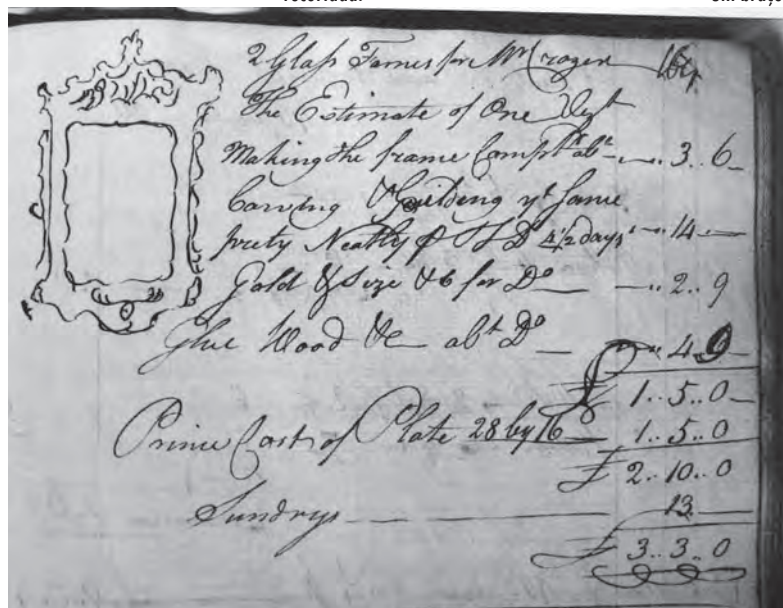 2 Glass Frames for Mr Crozer
The Estimate of One
Making the frame Compt abt - 3.. 6
Carving & Guilding ye same
prety Neatly 4 1/2 days - 14 -
Gold & Size &c for Do - 2.. 9
Glue Wood &c abt Do - 4 9
£ 1.. 5.. 0
Prime Cost of Plate 28 by 16 1.. 5.. 0
£ 2.. 10.. 0
Sundrys 13
£ 3.. 3.. 0